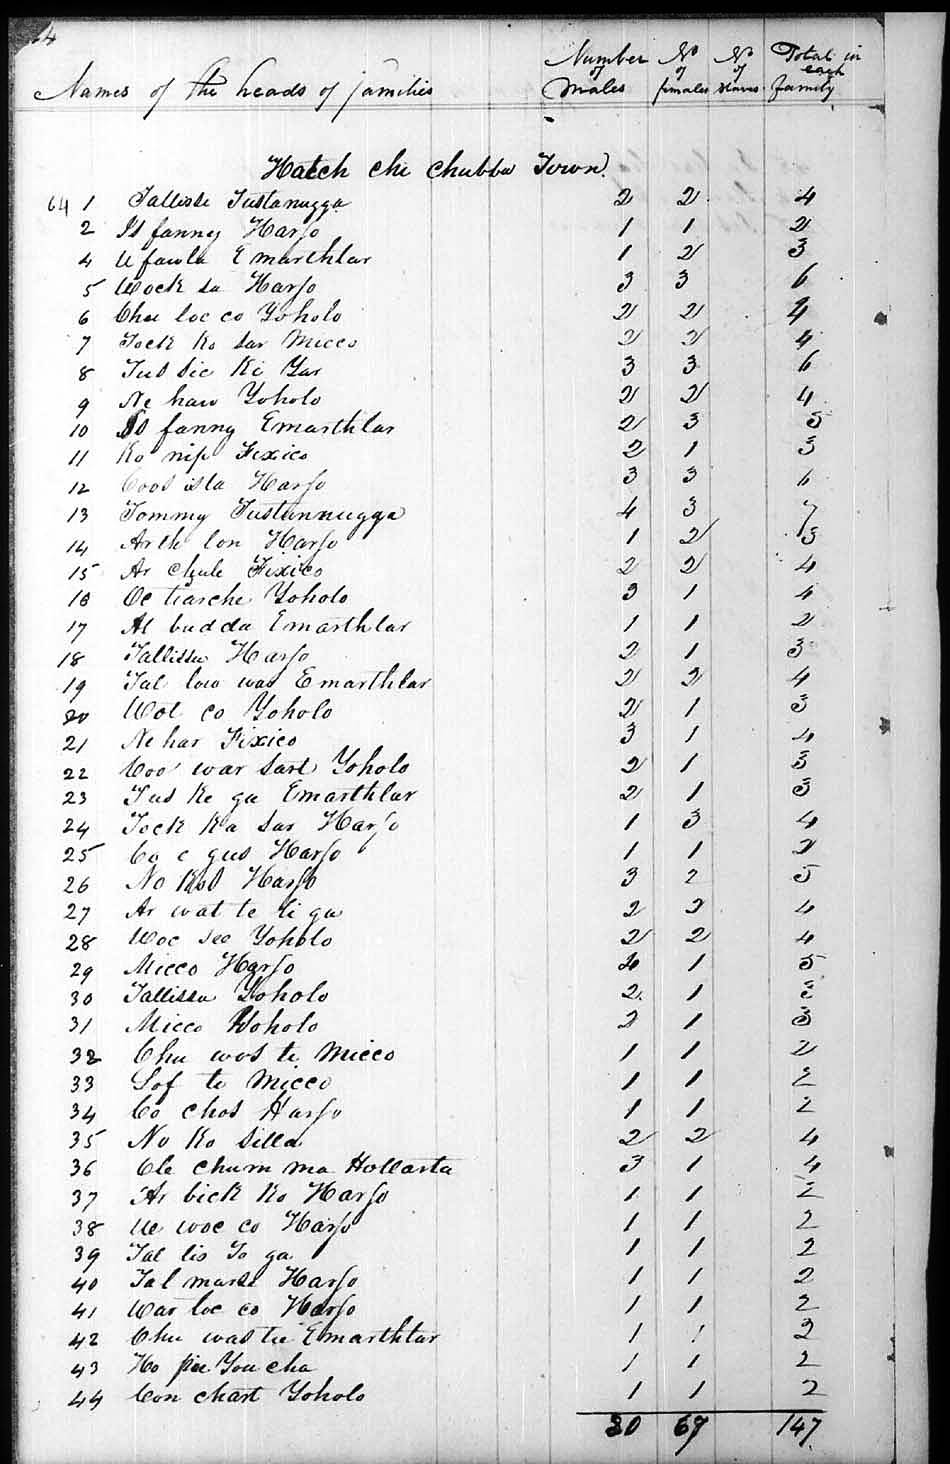 64
Names of the heads of families Number of Males No of females No of slaves Total in each family
Hatch che chubba Town
64 1 Tallisse Tustanugga 2 2 4
2 Is fanney Harjo 1 1 2
4 U faula Emarthlar 1 2 3
5 Wock sa Harjo 3 3 6
6 Chu loc co Yoholo 2 2 4
7 Tock ko sar Micco 2 2 4
8 Tus sic ki Yar 3 3 6
9 Ne haw Yoholo 2 2 4
10 Is fanny Emarthlar 2 3 5
11 Ko nip Fixico 2 1 3
12 Coos ista Harjo 3 3 6
13 Tommy Tustunnugga 4 3 7
14 Ar th lon Harjo 1 2 3
15 Ar chule Fixico 2 2 4
16 Oc tiarche Yoholo 3 1 4
17 Al budda Emarthlar 1 1 2
18 Tallissa Harjo 2 1 3
19 Tal low was Emarthlar 2 2 4
20 Wol co Yoholo 2 1 3
21 Ne har Fixico 3 1 4
22 Coo war sart Yoholo 2 1 3
23 Tus ke ga Emarthlar 2 1 3
24 Tock ka sar Harjo 1 3 4
25 Co c gus Harjo 1 1 2
26 No kos Harjo 3 2 5
27 Ar wat te li ga 2 2 4
28 Woc see Yoholo 2 2 4
29 Micco Harjo 4 1 5
30 Tallissa Yoholo 2 1 3
31 Micco Yoholo 2 1 3
32 Chu wos te Micco 1 1 2
33 Sof te Micco 1 1 2
34 Co chos Harjo 1 1 2
35 No ko silla 2 2 4
36 Cle chum ma Hollarta 3 1 4
37 Ar bick ko Harjo 1 1 2
38 Ue woc co Harjo 1 1 2
39 Tal lis To ga 1 1 2
40 Tal marse Harjo 1 1 2
41 War loc co Harjo 1 1 2
42 Chu was tie Emarthlar 1 1 2
43 Ho pie You cha 1 1 2
44 Con chart Yoholo 1 1 2
80 67 147